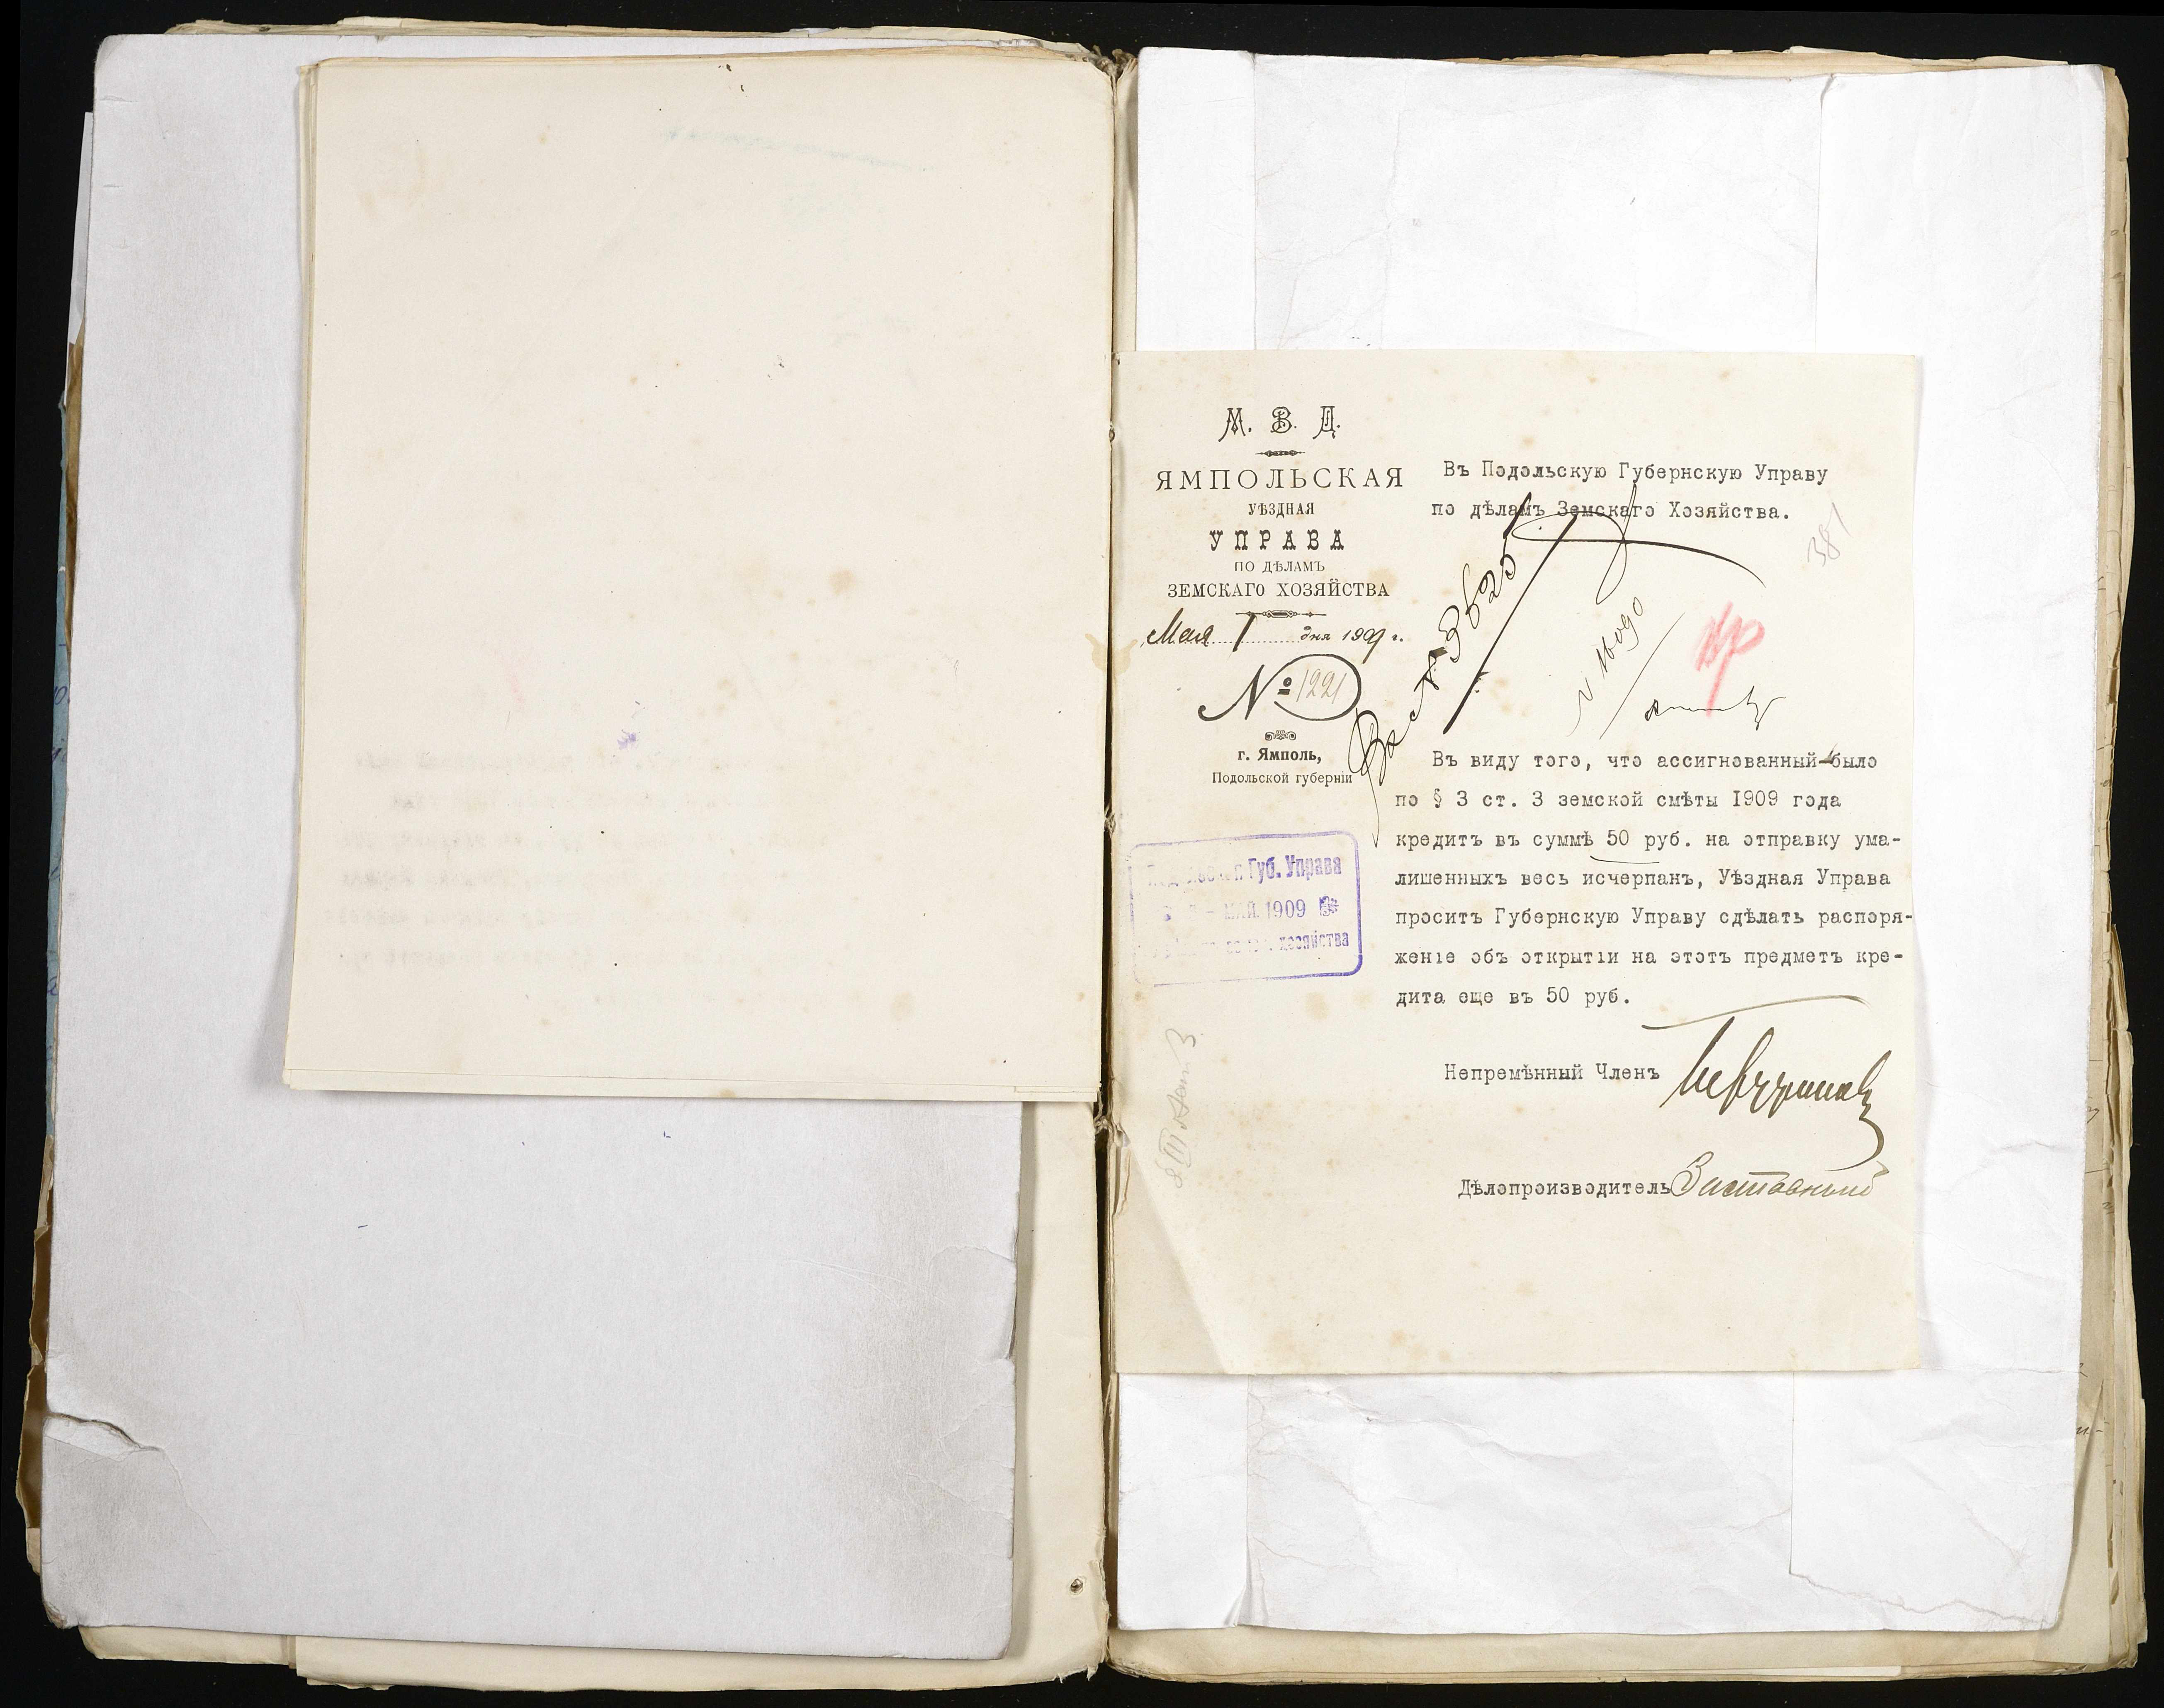 М. В. Д.
ЯМПОЛЬСКАЯ
УѢЗДНАЯ
УПРАВА
ПО ДѢЛАМЪ
ЗЕМСКАГО ХОЗЯЙСТВА
Мая 1 дня 1909 г.
№ 1221
г. Ямполь,
Подольской губерніи
Губ. Управа
МАЙ 1909
Въ Подольскую Губернскую Управу
по дѣламъ Земскаго Хозяйства.
381
№ 16090
Въ виду того, что ассигнованный было
по § 3 ст. 3 земской смѣты 1909 года
кредитъ въ суммѣ 50 руб. на отправку ума-
лишенныхъ весь исчерпанъ, Уѣздная Управа
проситъ Губернскую Управу сдѣлать распоря-
женіе объ открытіи на этотъ предметъ кре-
дита еще въ 50 руб.
Непремѣнный Членъ
Дѣлопроизводитель Заставный